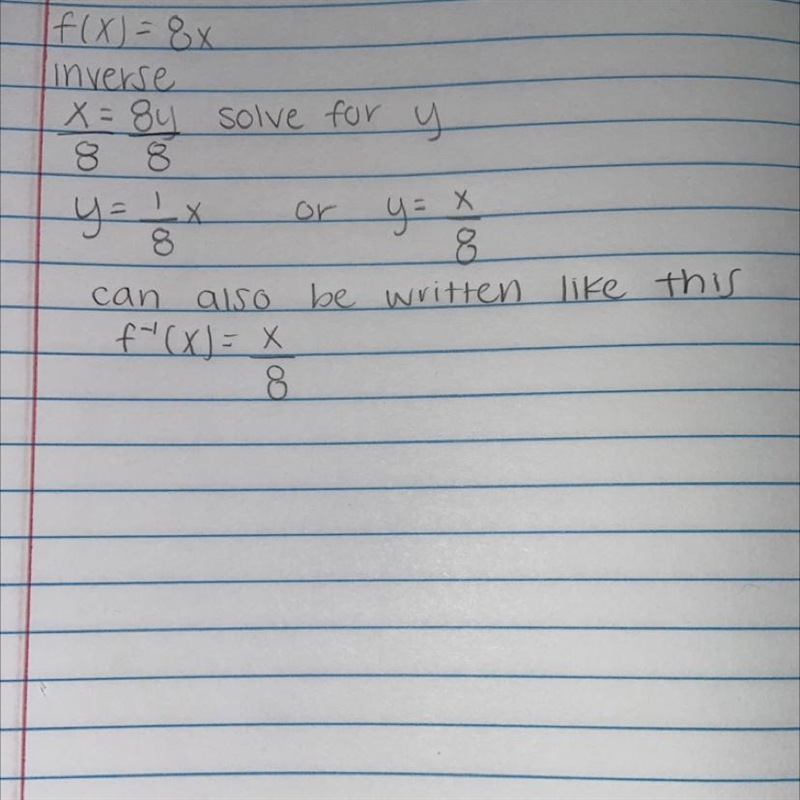 f(x) = 8x
inverse
x/8 = 8y/8 solve for y
y = 1/8 x or y = x/8
can also be written like this
f⁻¹(x) = x/8